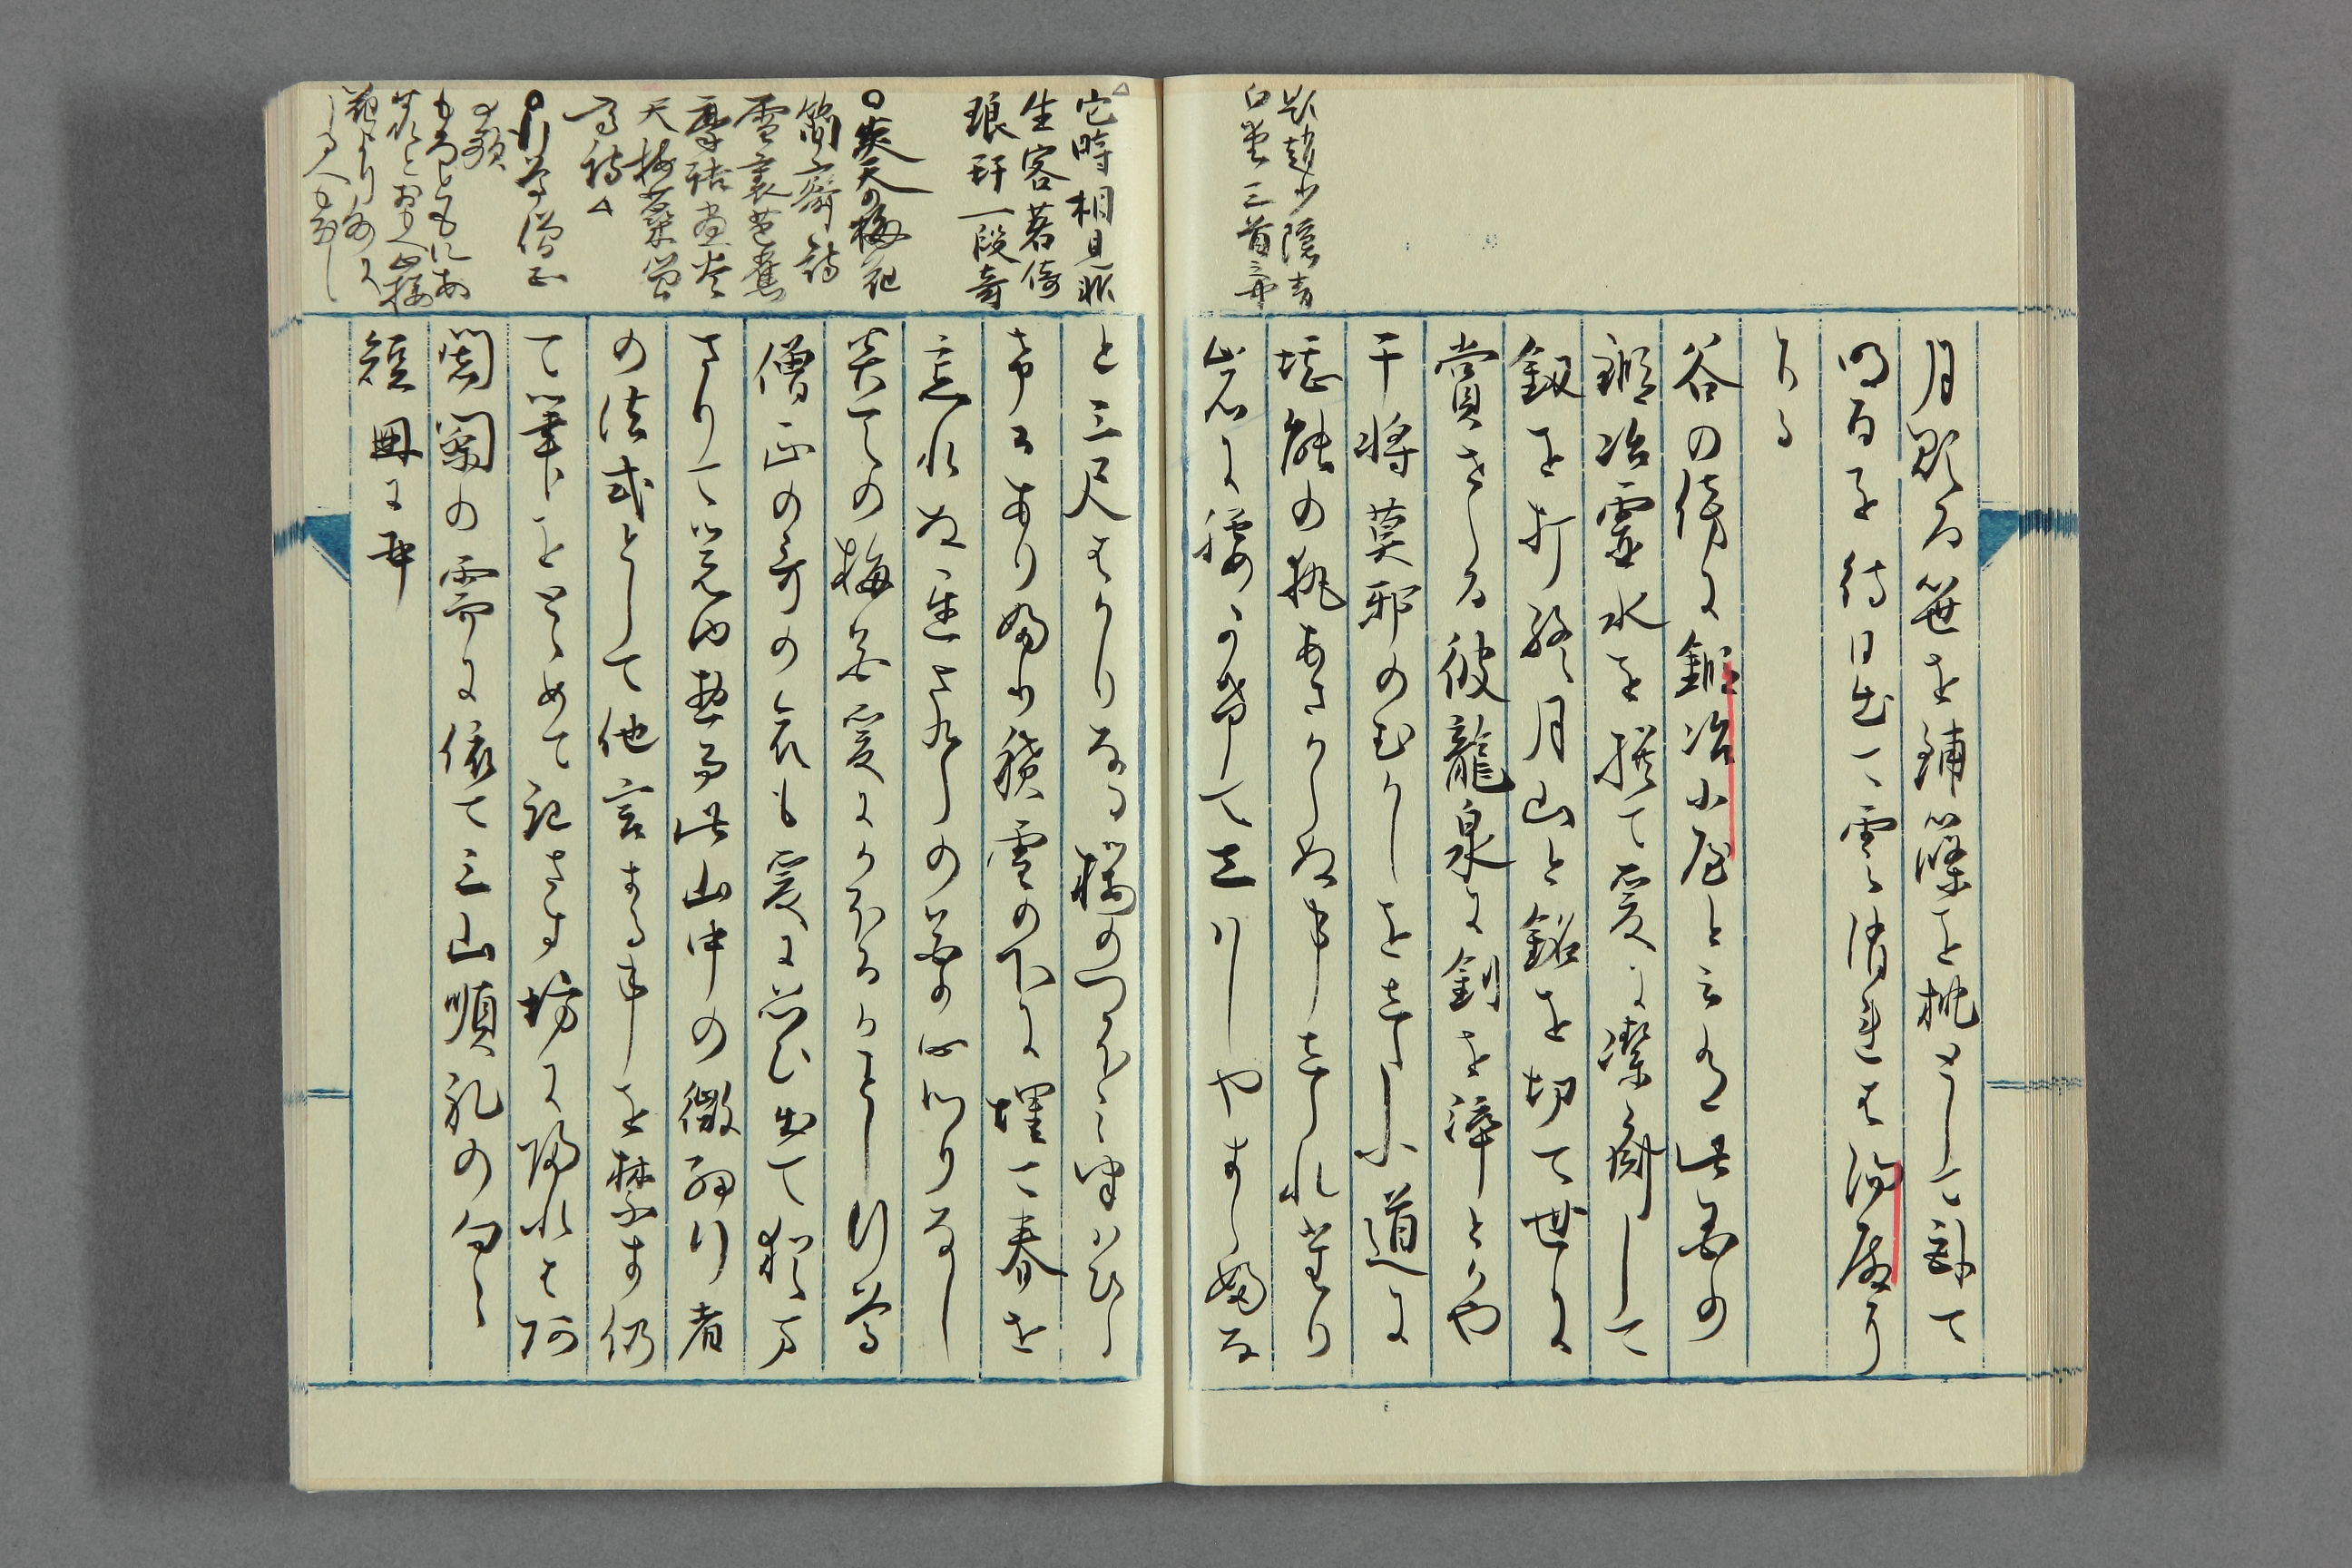 題趙少隠青
白堂三首
月顕る笹を鋪篠を枕として臥て
明るを待日出て雲消れは湯殿に
下る
谷の傍に鍛冶小屋と云有此国の
鍛冶霊水を撰て爰に潔斎して
釼を打終月山と銘を切て世に
賞せらる彼龍泉に剣を淬とかや
干将莫耶のむかしをしたふ道に
堪能の執あさからぬ事しられたり
岩に腰かけてしはしやすらふほ
△它時相見非
生客若倚
琅玕一段奇
○炎天の梅花
簡斎詩
雪裏芭蕉
摩詰画炎
天梅蘂
詩△
○行尊僧正
の歌
もろともにあ
はれとおもへ山桜
花より外に
しる人もなし
と三尺はかりなる桜のつほみ半ひら
けるあり降り積雪の下に埋て春を
忘れぬ遅さくらの花の心わりなし
炎天の梅花爰にかほるかことし行尊
僧正の哥の哀も爰に思ひ出て猶ま
さりて覚ゆ惣而此山中の微細行者
の法式として他言する事を禁す仍
て筆をとゝめて記さす坊に帰れは阿
闍梨の需に依て三山順礼の句々
短冊に書